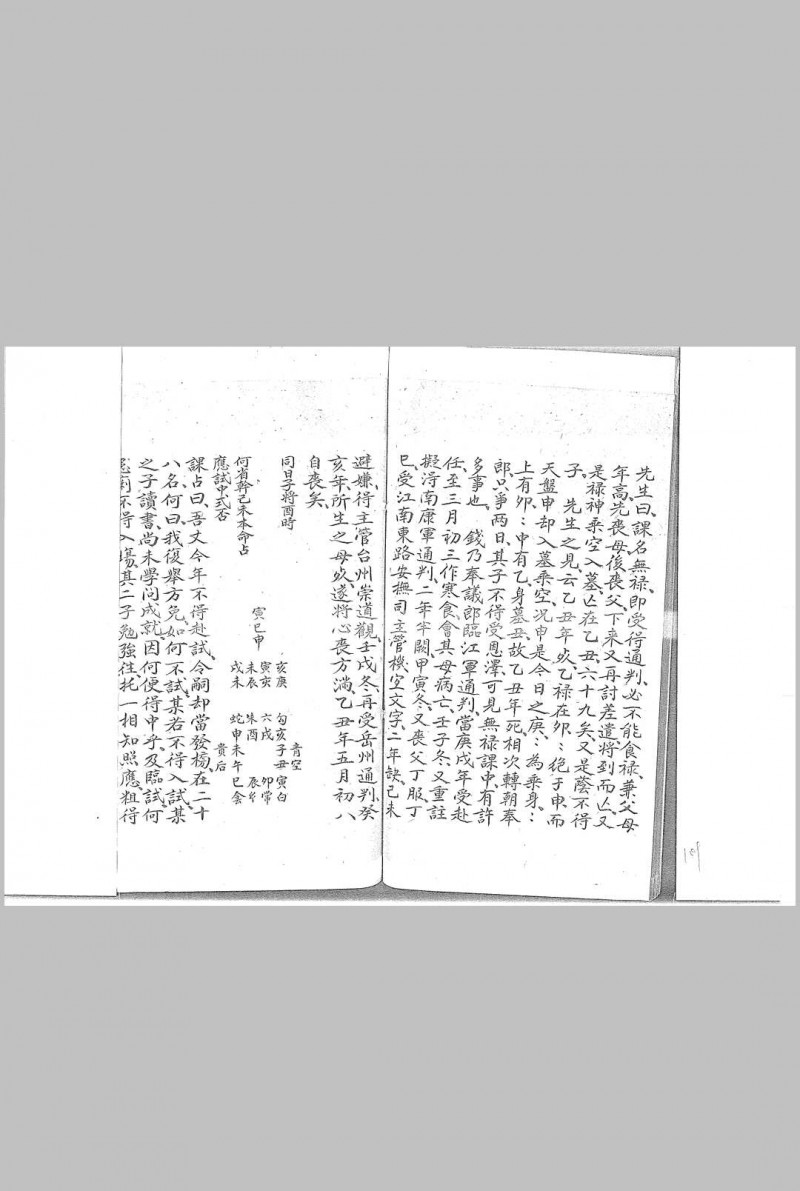 先生曰、課名無祿、即受得通判、必不能食祿、兼父母
年高、先喪母、後喪父、下來又再討差遣將到而亡、又
是祿神乘空入墓、亡在乙丑、六十九矣、又是蔭不得
子、先生之見、云乙丑年死、乙祿在卯、卯絕于申、而
天盤申却入墓乘空、況申是今日之庚、庚為乘身、身
上有卯、卯申有乙、身墓丑、故乙丑年死、相次轉朝奉
郎、只爭兩日、其子不得受恩澤、可見無祿課中、有許
多事也、錢乃奉議郎、臨江軍通判、當庚戌年受赴
任、至三月初三、作寒食會、其母病亡、壬子冬、又重註
擬得南康軍通判、二年半闕、甲寅冬、又喪父丁服、丁
巳、受江南東路安撫司主管機宜文字、二年缺、己未
避嫌、得主管台州崇道觀、壬戌冬、再受岳州通判、癸
亥年、所生之母死、遂將心喪方滿、乙丑年五月初八
自喪矣、
同日子將酉時
何省幹己未本命占
應試中式否
寅巳申
亥庚
寅亥
未辰
戌未
青空
勾亥子丑寅白
六戌 卯常
朱酉 辰玄
蛇申未午巳陰
貴后
課占曰、吾丈今年不得赴試、令嗣却當發楊、在二十
八名、何曰、我復舉方免、如何不試、某若不得入試、某
之子讀書、尚未學问成就、因何便得中乎、及臨試、何
不得入場、其二子勉強往、托一相知照應、粗得
101